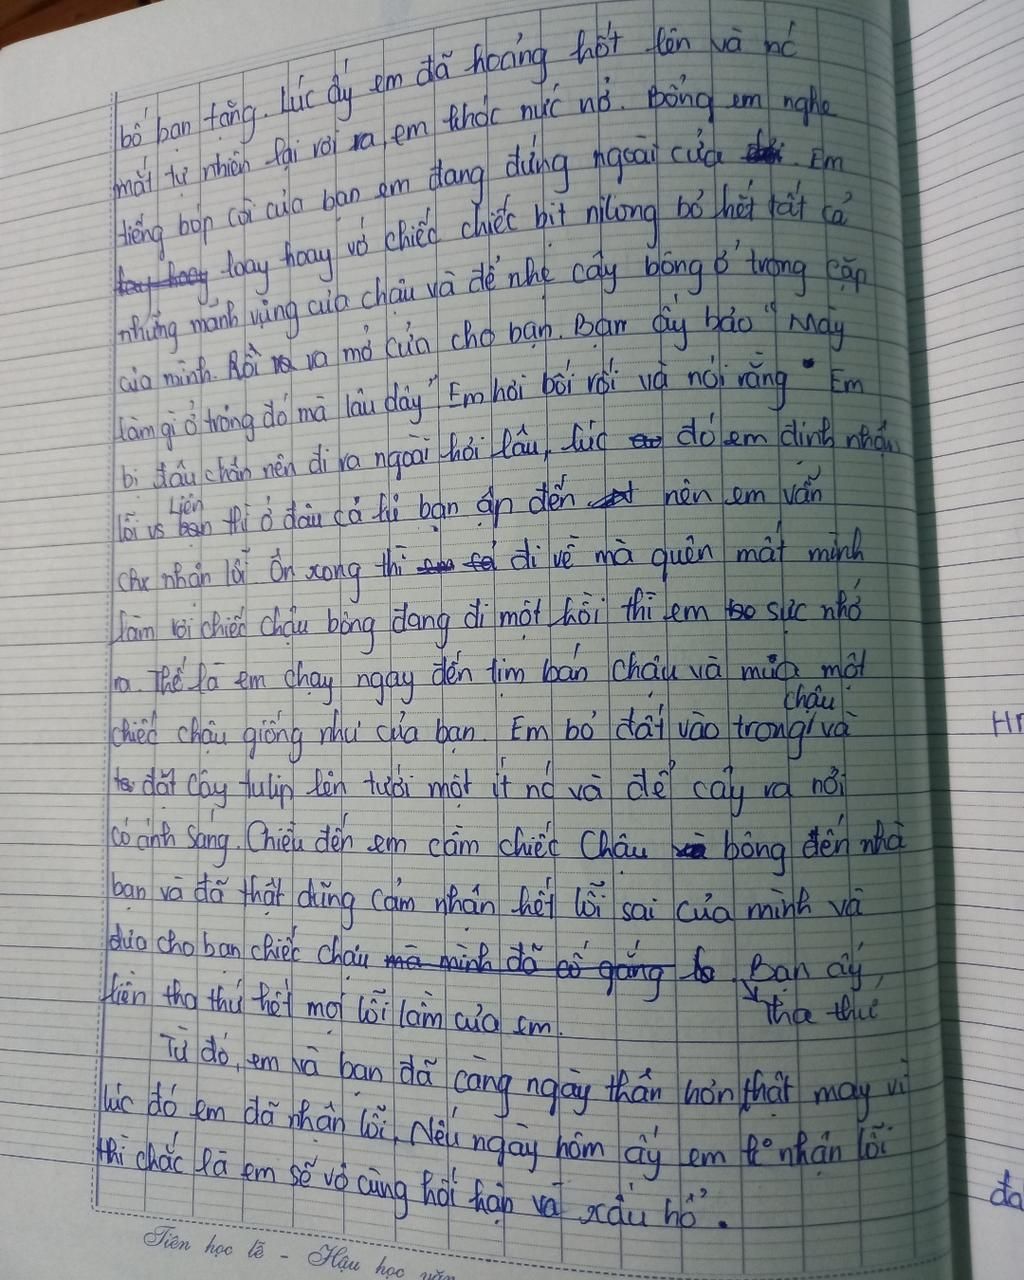 bố bạn tặng. Lúc ấy em đã hoảng hốt lên và nc
mắt tự nhiên lại rơi ra, em khóc nức nở. Bỗng em nghe
tiếng bóp còi của bạn em đang đứng ngoài cửa. Em
loay hoay vớ chiếc chiếc bịt nilong bỏ hết tất cả
những mảnh vụng của chậu và để nhẹ cây bông ở trong cặp
của mình. Rồi ra mở cửa cho bạn. Bạn ấy bảo " Mày
làm gì ở trỏng đó mà lâu dậy" Em hơi bối rối và nói rằng " Em
bị đâu chân nên đi ra ngoài hơi lâu, lúc đó em định nhận
lỗi vs Liên thì ở đâu cả tụi bạn ập đến nên em vẫn
chx nhận lỗi Ôn xong thì đi về mà quên mất mình
làm rơi chiếc chậu bông đang đi một hồi thì em sực nhớ
ra. Thế là em chạy ngay đến tìm bán chậu và mua một
chiếc chậu giống như của bạn. Em bỏ đất vào trong chậu và
đặt cây tulip lên tưới một ít nc và để cây ra nơi
có ánh sáng. Chiều đến em cầm chiếc Chậu bông đến nhà
bạn và đã thật dũng cảm nhận hết lỗi sai của mình và
đưa cho bạn chiếc chậu mà mình đã cố gắng. Bạn ấy,
liền tha thứ hết mọi lỗi lầm của em. tha thứ
Từ đó, em và bạn đã càng ngày thân hơn thật may vì
lúc đó em đã nhận lỗi. Nếu ngày hôm ấy em ko nhận lỗi
thì chắc là em sẽ vô cùng hối hận và xấu hổ.
Tiên học lễ - Hậu học văn